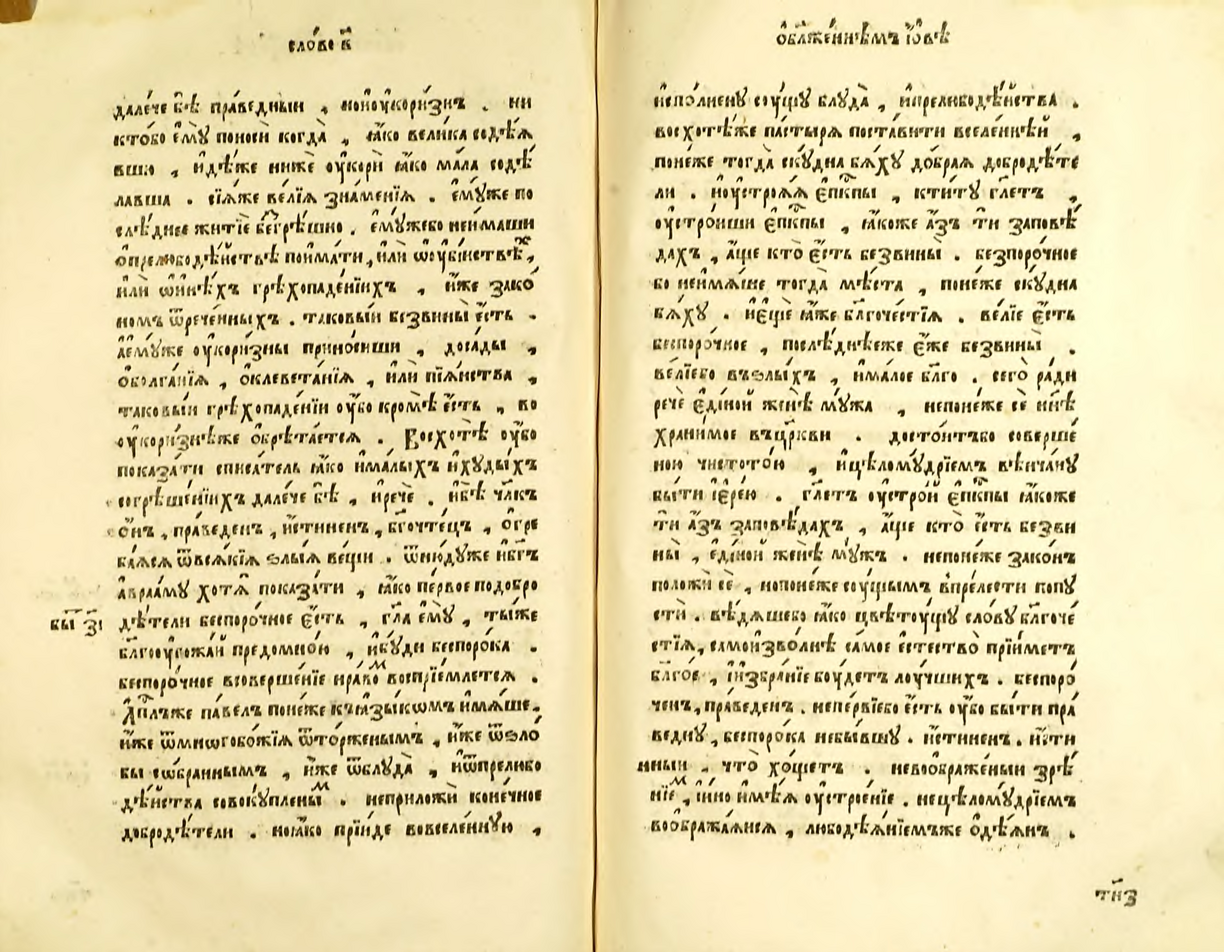 сло́во в҃
дале́че бѣ̀ пра́ведныи , ноиоукори́знъ . ни
кто́бо є҆мꙋ̀ поносѝ когда̀ , ꙗ҆́ко вели́ка содѣ́ѧ
вшю , и҆дѣ́же ни́же оу҆корѝ ꙗ҆́ко ма́ла содѣ́
лавша . сїѧ́же ве́лїѧ зна́менїѧ . є҆мꙋ́же по
слѣ́днее житїѐ безгрѣ́шно . є҆мꙋ́жебо неи́маши
ѻ҆прелюбодѣ́йствѣ пои́мати , и҆лѝ ѡ҆оу҆бі́йствѣ ,
и҆лѝ ѡ҆и҆нѣ́хъ грѣхопаде́нїихъ , и҆́же зако́
номъ ѿрече́нныхъ . таковы́и безвины̀ є҆́сть .
а҆є҆мꙋ́же оу҆кори́зны прино́сиши , доса́ды ,
ѻ҆болга́нїѧ , ѻ҆клевета́нїѧ , и҆лѝ пїѧ́нства ,
таковы́и грѣхопаде́нїи оу҆́бо кромѣ̀ є҆́сть , во
оу҆кори́знѣже ѻ҆брѣта́етсѧ . Восхотѣ̀ оу҆́бо
показа́ти списа́тель ꙗ҆́ко и҆ма́лыхъ и҆хꙋды́хъ
согрѣше́нїихъ дале́че бѣ̀ , и҆речѐ . и҆бѣ̀ чл҃къ
ѻ҆́нъ , пра́веденъ , и҆́стиненъ , бг҃очте́цъ , ѻ҆гре
ба́ѧсѧ ѿвсѧ́кїѧ ѕлы́ѧ ве́щи . ѿню́дꙋже и҆бг҃ъ
а҆враа́мꙋ хотѧ̀ показа́ти , ꙗ҆́ко пе́рвое подобро
бы҃ з҃і дѣ́тели беспоро́чное є҆́сть , гл҃а є҆мꙋ̀ , ты́же
бл҃гооугожа́й предомно́ю , и҆бꙋ́ди беспоро́ка .
беспоро́чное всоверше́нїе нра́вом воспрїе́млетсѧ .
Ап҃лъже па́велъ поне́же къꙗ҆зы́кѡмъ и҆мѧ́ше ,
и҆́же ѿмно́гобожїѧ ѿто́рженымъ , и҆́же ѿѕло́
бы сѡ́браннымъ , и҆́же ѿблꙋ́да , и҆ѿпрелюбо
дѣ́йства совокꙋ́плены́м . неприложѝ коне́чное
добродѣ́тели . ноꙗ҆́ко прїи́де вовселе́ннꙋю ,
ѻ҆бл҃же́ннѣмъ і҆́ѡвѣ
и҆спо́лненꙋ сꙋ́щꙋ блꙋда̀ , и҆прелюбодѣ́йства .
восхотѣ́же па́стырѧ поста́вити вселе́ннѣй ,
поне́же тогда̀ скꙋ́дна бѧ́хꙋ до́браѧ добродѣ́те
ли . и҆оустроѧ́ѧ є҆пк҃пы , кти́тꙋ гл҃етъ ,
оу҆стро́иши є҆пк҃пы , ꙗ҆́коже а҆́зъ тѝ заповѣ́
дахъ , а҆́ще кто̀ є҆́сть безвины̀ . безпоро́чное
бо неи҆мѧ́ше тогда̀ мѣ́ста , поне́же скꙋ́дна
бѧ́хꙋ . и҆є҆щѐ ꙗ҆́же бл҃гоче́стїѧ . ве́лїе є҆́сть
беспоро́чное , послѣ́днѣеже є҆́же безвины̀ .
ве́лїебо въѕлы́хъ , и҆ма́лое бл҃го . сего̀ ра́ди
речѐ є҆ди́ной женѣ̀ мꙋ́жа , непоне́же сѐ нн҃ѣ
храни́мое въцр҃кви . досто́итъбо соверше́
ною чистото́ю , и҆целомꙋ́дрїемъ вѣнча́нꙋ
бы́ти і҆ере́ю . гл҃етъ оу҆стро́й є҆пк҃пы ꙗ҆́коже
тѝ а҆́зъ заповѣ́дахъ , а҆́ще кто̀ є҆́сть безви
ны̀ , є҆ди́ной женѣ̀ мꙋ́жъ . непоне́же зако́нъ
положѝ сѐ , нопоне́же сꙋ́щымъ впре́лести попꙋ
стѝ . вѣ́дѧшебо ꙗ҆́ко цвѣтꙋ́щꙋ сло́вꙋ бл҃гоче́
стїѧ , самоизво́лнѣ са́мое є҆стество̀ прїи́метъ
бл҃го́е , и҆и҆збра́нїе бꙋ́детъ лꙋ́чшихъ . беспоро́
ченъ , пра́веденъ . непе́рвїебо є҆́сть оу҆́бо бы́ти пра́
веднꙋ , беспоро́ка небы́вшꙋ . и҆́стиненъ . и҆́сти
нныи , что̀ хо́щетъ . невоѡбраже́ныи зрѣ́
нїем , и҆́но и҆мѣ́ѧ оу҆строе́нїе . нецѣломꙋ́дрїемъ
воображаѧ́исѧ , любодѣѧ́нїемъже ѻ҆дѣ́ѧнъ .
ти҃з